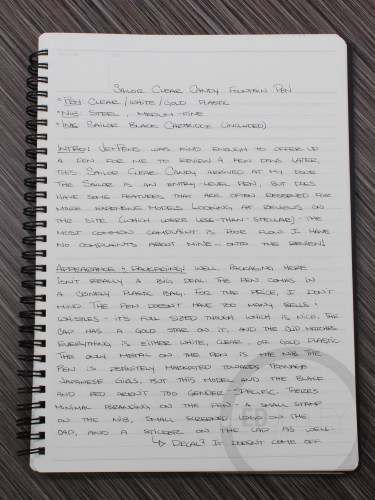 Sailor Clear Candy Fountain Pen
* Pen: Clear/White/Gold Plastic
* Nib: Steel, Medium-Fine
* Ink: Sailor Black Cartridge (included)
Intro: JetPens was kind enough to offer up
a pen for me to review. A few days later,
this Sailor Clear Candy arrived at my door.
The Sailor is an entry-level pen, but does
have some features that are often reserved for
more expensive models. Looking at reviews on
the site (which were less-than-stellar) - the
most common complaint is poor flow. I have
no complaints about mine - onto the review!
Appearance & Packaging: Well, packaging here
isn't really a big deal. The pen comes in
a plastic bag. For the price, I don't
mind. The pen doesn't have too many bells &
whistles - it's full sized though which is nice. The
cap has a gold star on it, and the clip matches.
Everything is either white, clear, or gold plastic.
The only metal on the pen is the nib. The
pen is definitely marketed towards teenage
Japanese girls, but this model and the black
and red aren't too gender specific. There's
minimal branding on the pen. A small stamp
on the nib, small screened logo on the
cap, and a sticker on the cap as well.
↳ Decal? It doesn't come off